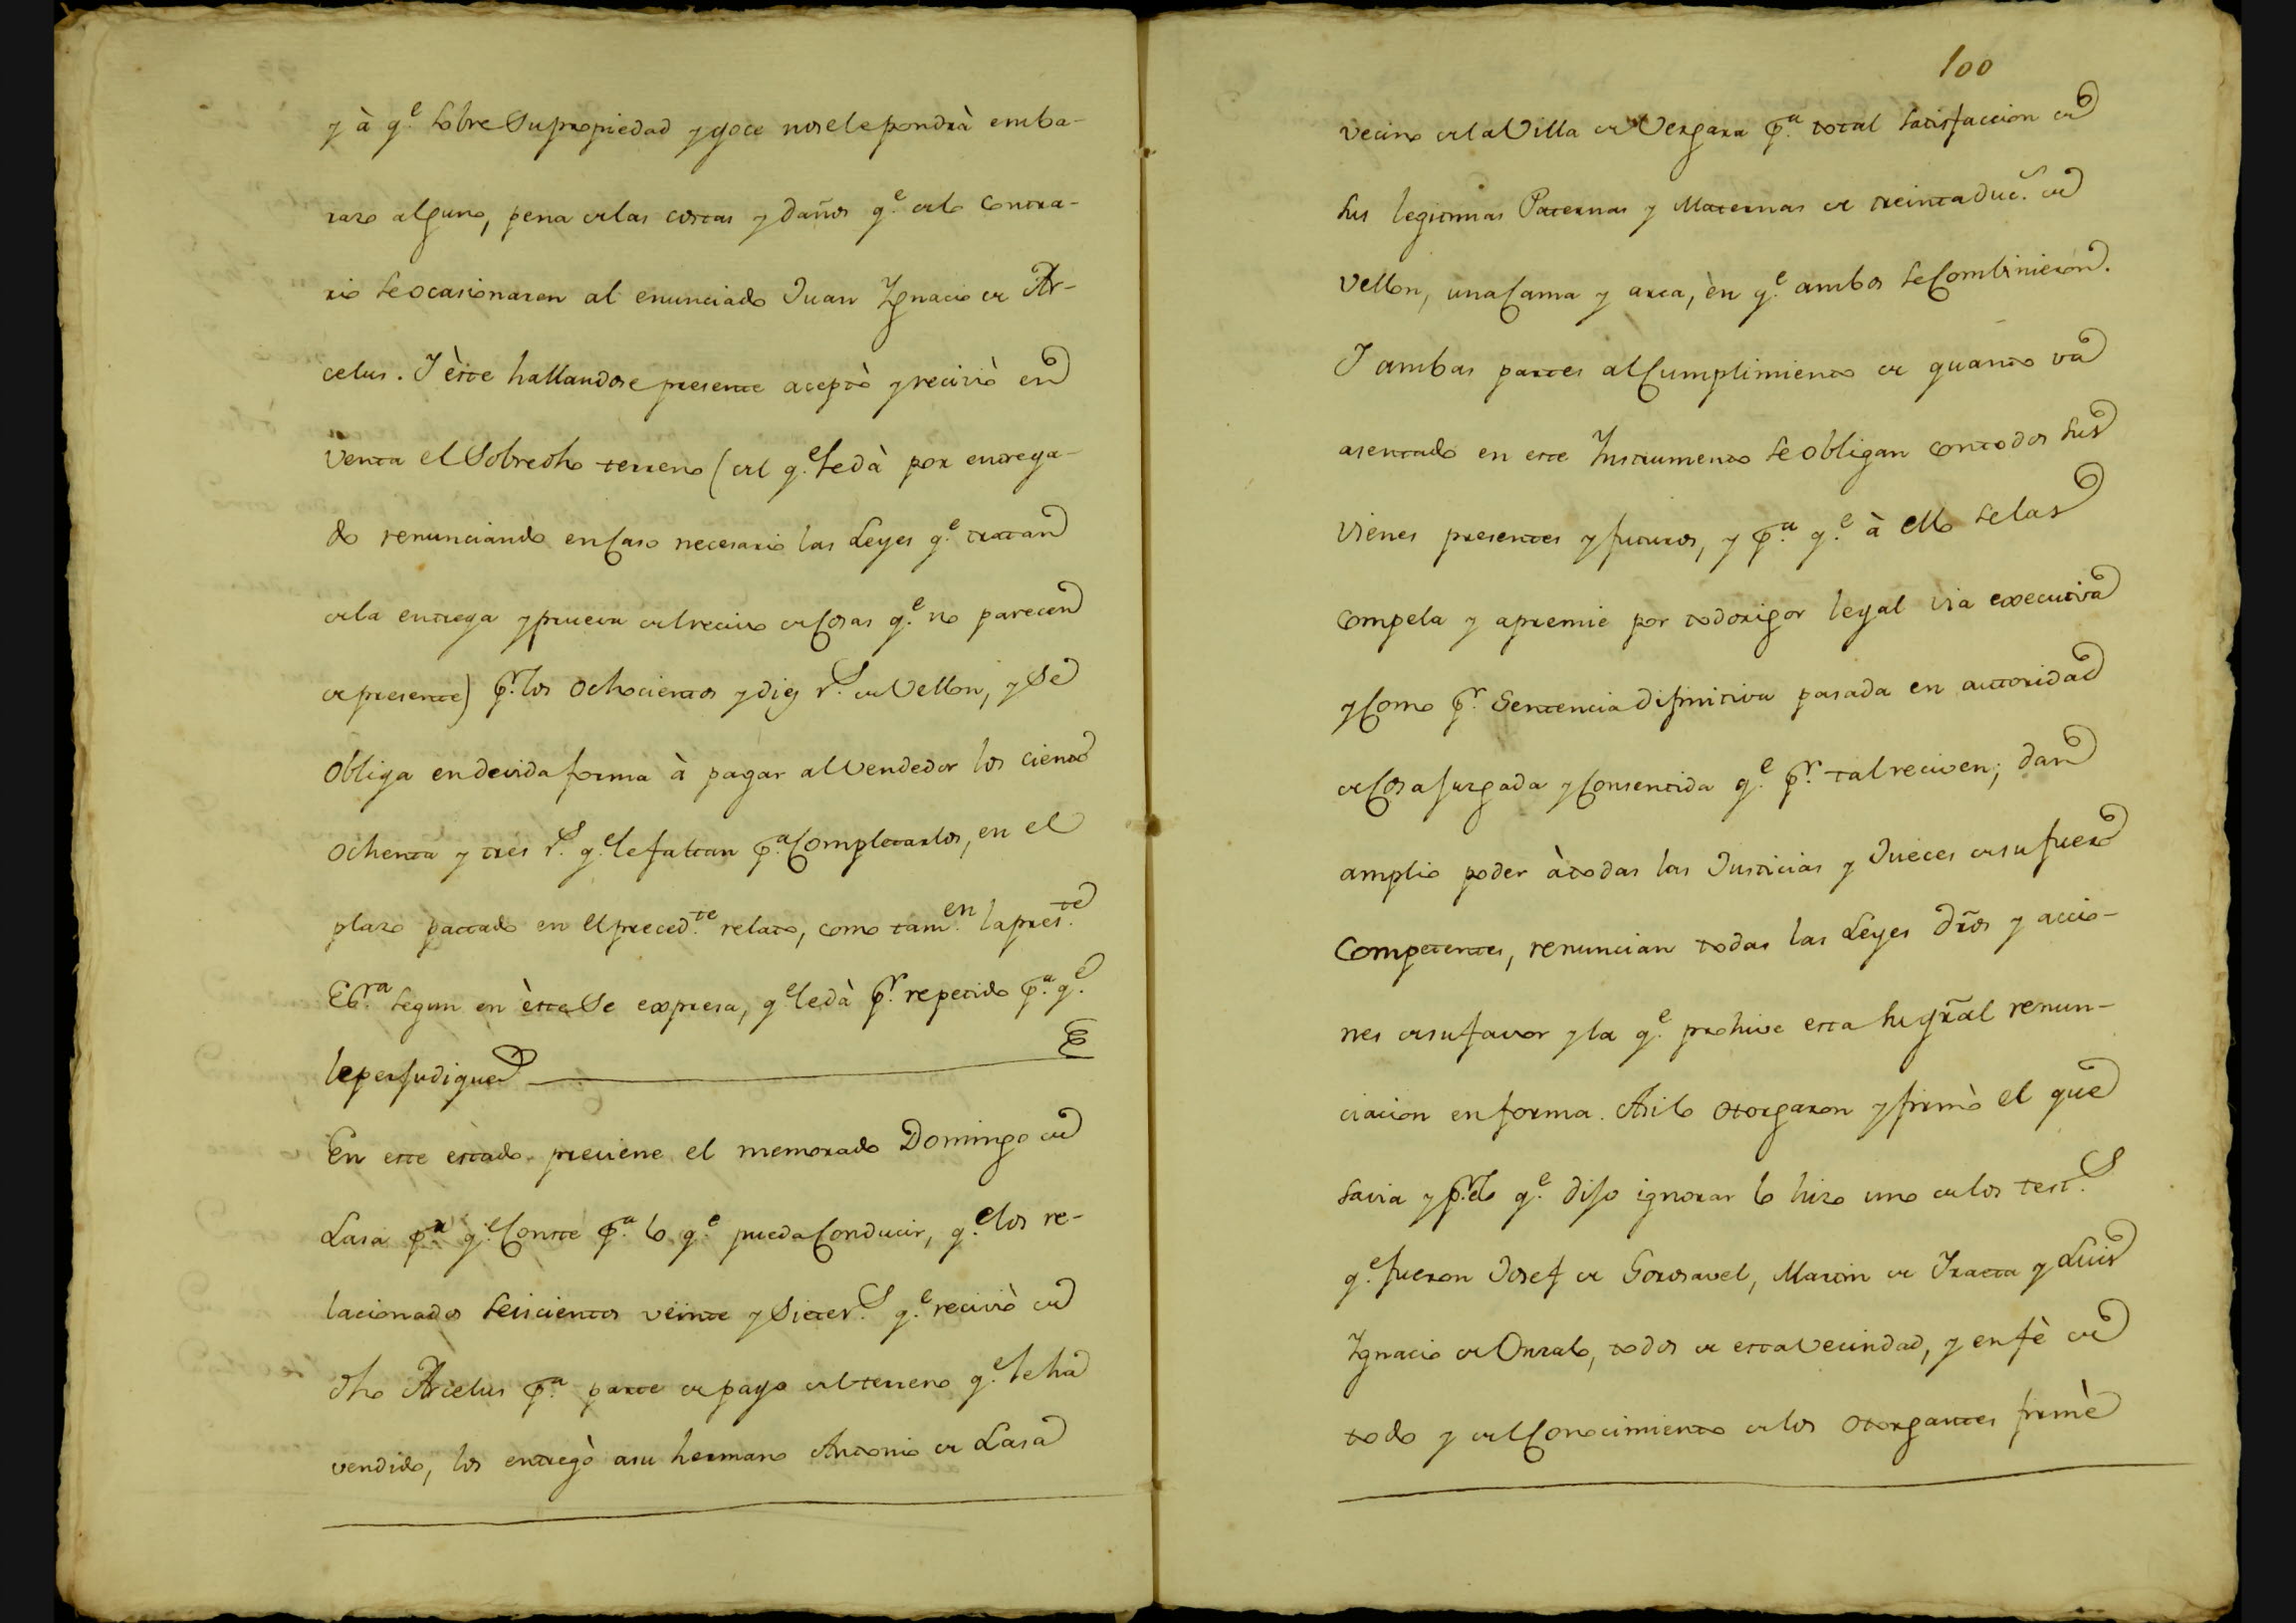 y à q.e sobre su propiedad y goce no se le pondrà emba-
razo alguno, pena de las costas y daños q.e de lo contra-
rio se ocasionaren al enunciado Juan Ygnacio de Ar-
celus. I èste hallandose presente aceptò y reciviò en
venta el sobredho terreno (del q.e se dà por entrega-
do renunciando en caso necesario las Leyes q.e tratan
de la entrega y prueva del recivo de cosas q.e no parecen
de presente) p.r los ochocientos y diez r.s de vellon, y se
obliga en devida forma à pagar al vendedor los ciento
ochenta y tres r.s q.e le faltan p.a completarlos, en el
plazo pactado en el preced.te relato, como tam.en la pres.te
Ess.ra segun en èsta se expresa, q.e le dà p.r repetido p.a q.e
le perjudique
En este estado previene el memorado Domingo de
Lasa p.a q.e conste p.a lo q.e pueda conducir, q.e los re-
lacionados seiscientos veinte y siete r.s q.e reciviò de
dho Arcelus p.a parte de pago del terreno q.e le ha
vendido, los entregò a su hermano Antonio de Lasa
100
vecino de la Villa de Vergara p.a total satisfaccion de
sus legitimas Paternas y Maternas de treinta duc.s de
vellon, una cama y arca, èn q.e ambos se combinieron.
I ambas partes al cumplimiento de quanto va
asentado en este Instrumento se obligan con todos sus
vienes presentes y futuros, y p.a q.e à ello se las
compela y apremie por todo rigor legal via executiva
y como p.r Sentencia difinitiva pasada en autoridad
de cosa juzgada y consentida q.e p.r tal reciven; dan
amplio poder à todas las Justicias y Jueces de su fuero
competentes, renuncian todas las Leyes dr̃os y accio-
nes de su favor y la q.e prohive esta su gr̃al renun-
ciacion en forma. Asi lo otorgaron y firmò el que
savia y p.r el q.e dijo ignorar lo hizo uno de los test.s
q.e fueron Josef de Gorosavel, Martin de Iraeta y Luis
Ygnacio de Onzalo, todos de esta vecindad, y en fè de
todo y del conocimiento de los otorgantes firmè